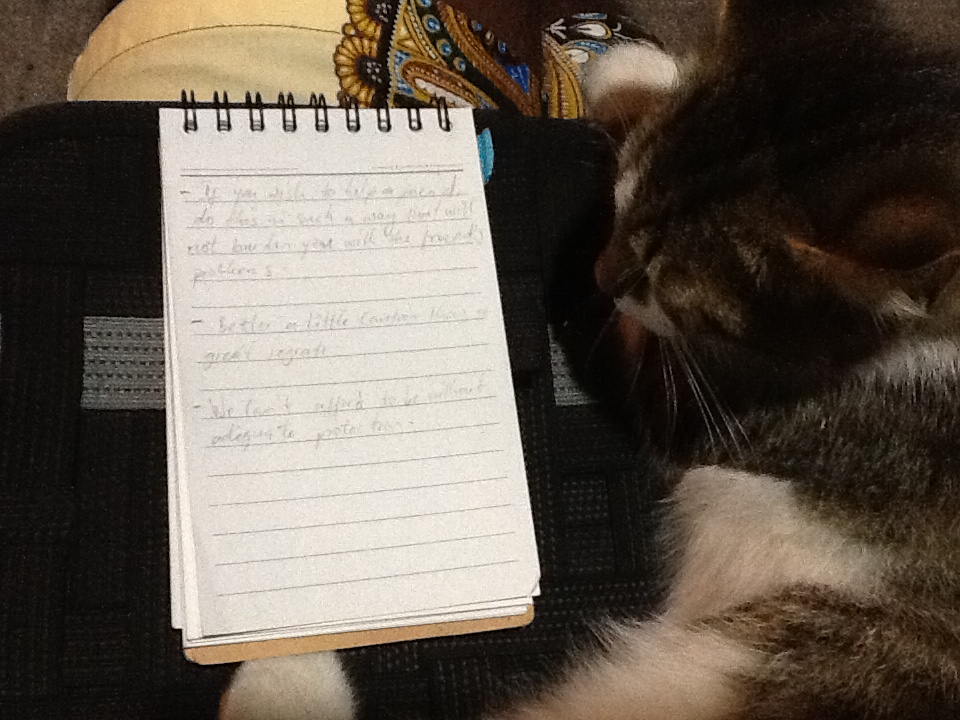 - If you wish to help a friend
do this in such a way that will
not burden you with the friend's
problems.
- Better a little caution than a
great regret.
- We can't afford to be without
adequate protection.